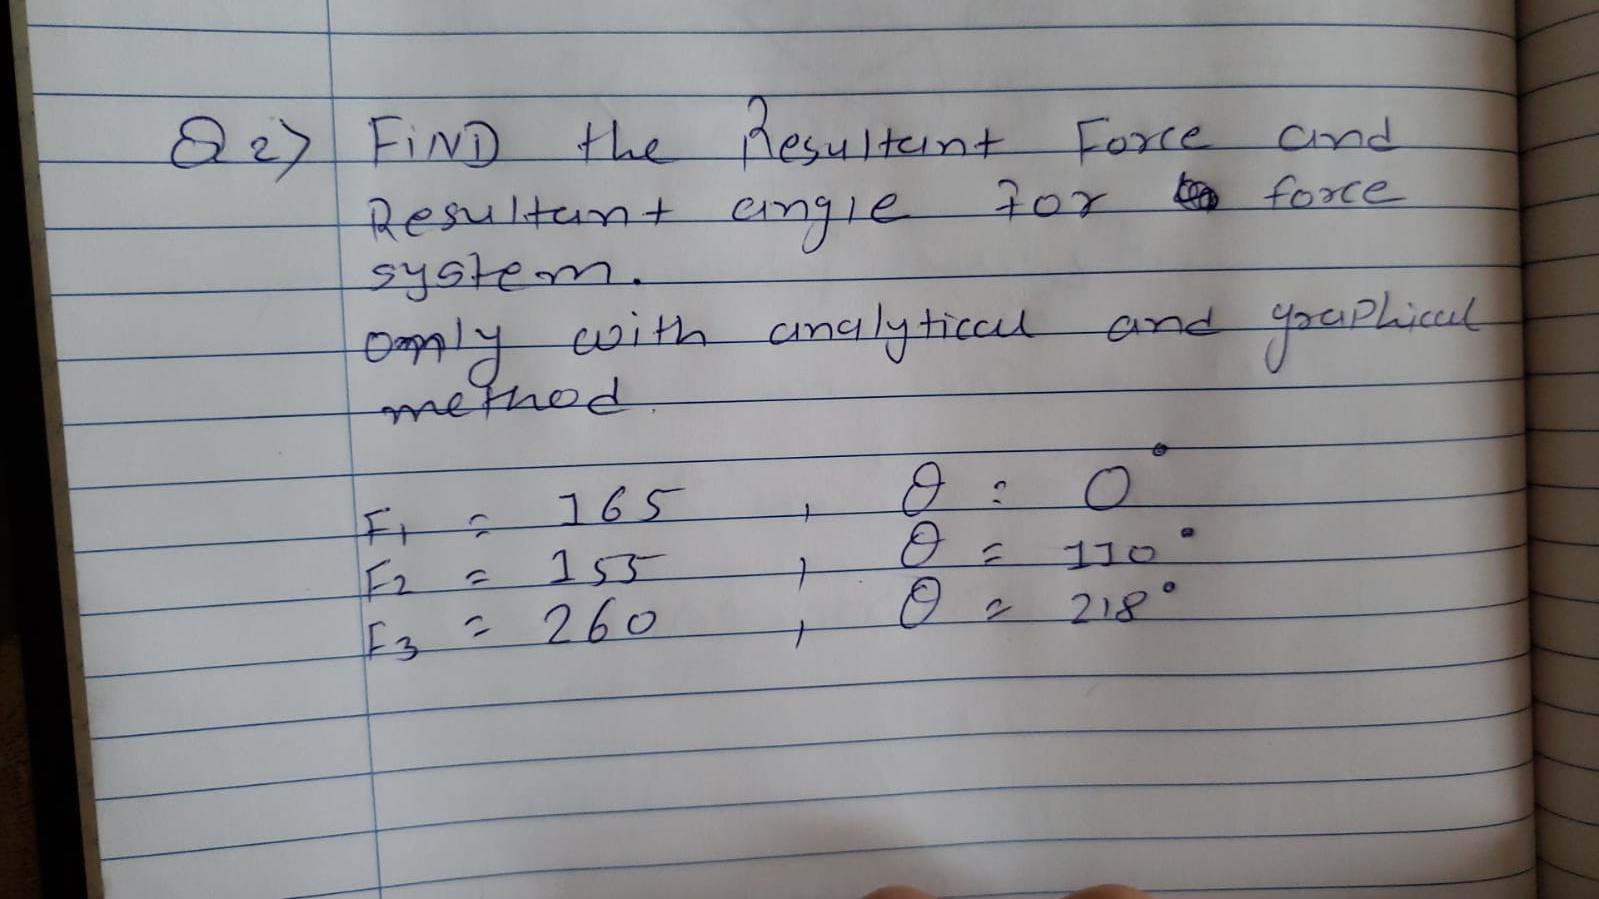 Q2> FiND the Resultant Force and
Resultant angle for force
system.
only with analytical and graphical
method.
F1 = 165 , θ = 0°
F2 = 155 , θ = 110°
F3 = 260 , θ = 218°